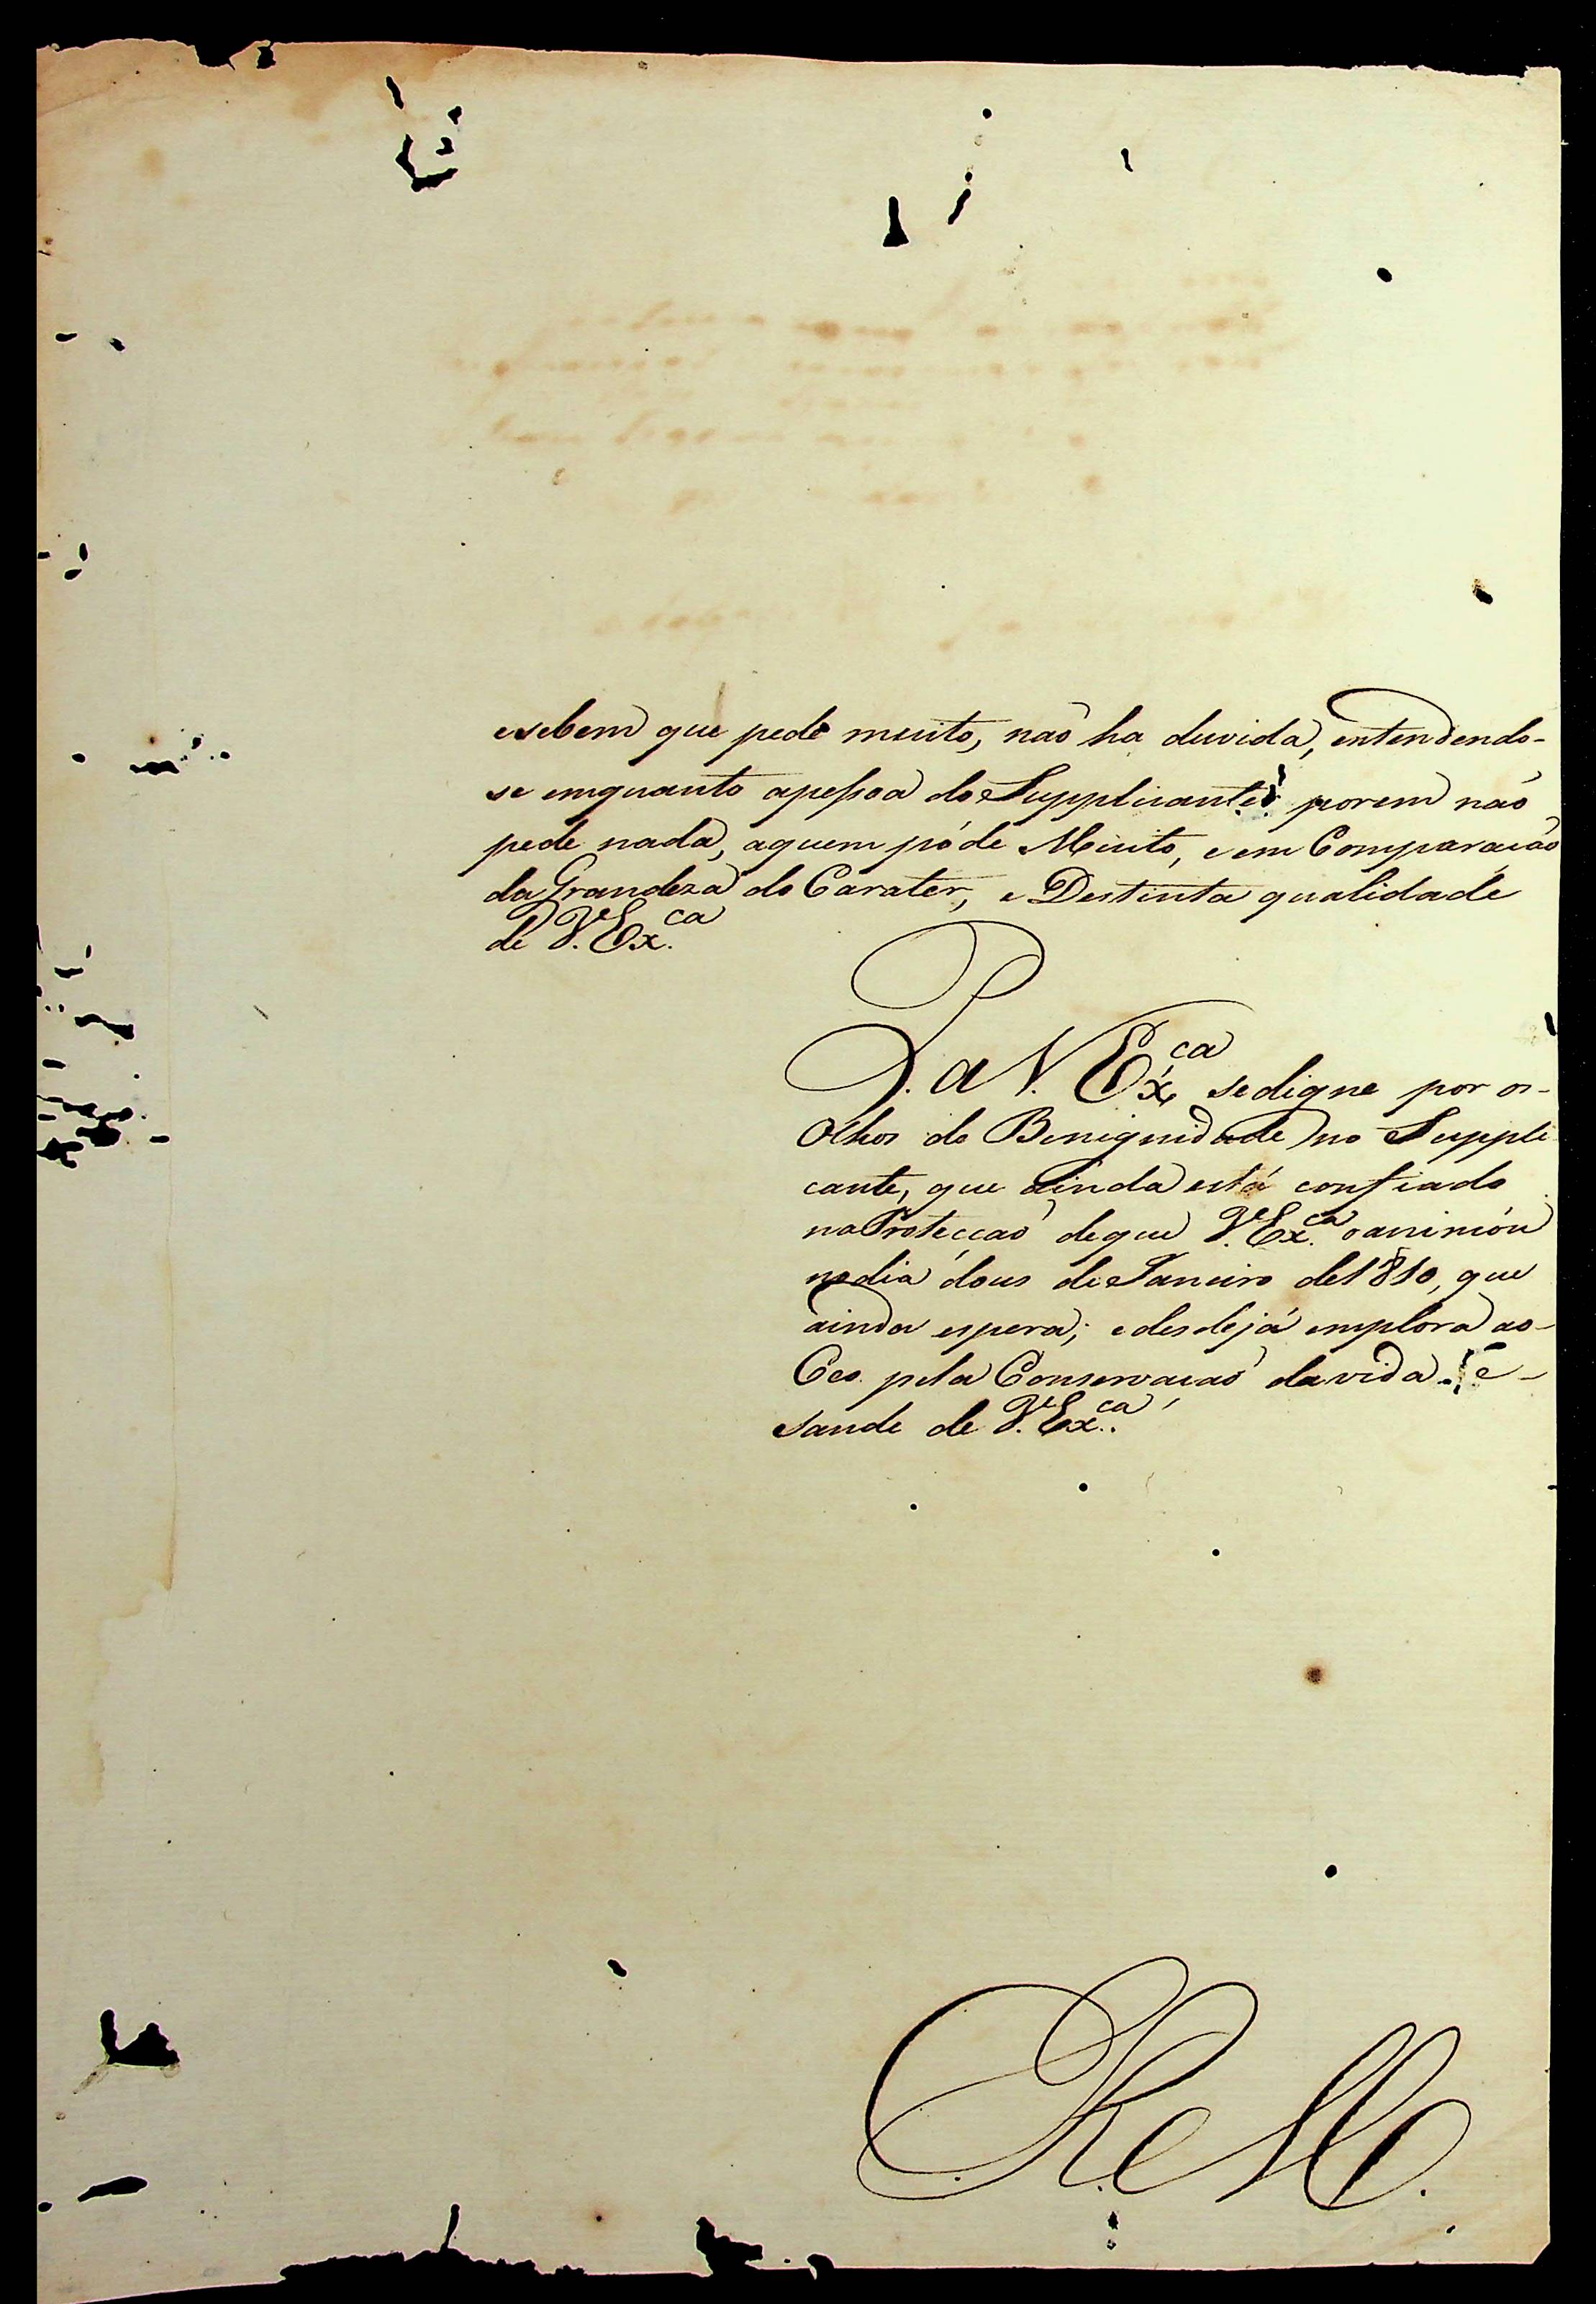 esebem que pede muito, naõ ha duvida, entendendo-
se emquanto apeſsoa do Supplicante; porem naõ
pede nada, aquem póde Muito, e em Comparaçaõ
da Grandeza do Carater, e Destinta qualidade
de V. Ex.ca
P. a V. Ex.ca sedigne por os-
Olhos de Benignidade no Suppli
cante, que ainda está confiado
na Protecçaõ deque V. Ex.ca o animou
no dia dous de Janeiro de 1810, que
ainda espera; e desdejá emplora ao-
Ceo. pela Conservaçaõ da vida e-
saude de V. Ex.ca
R. e M.